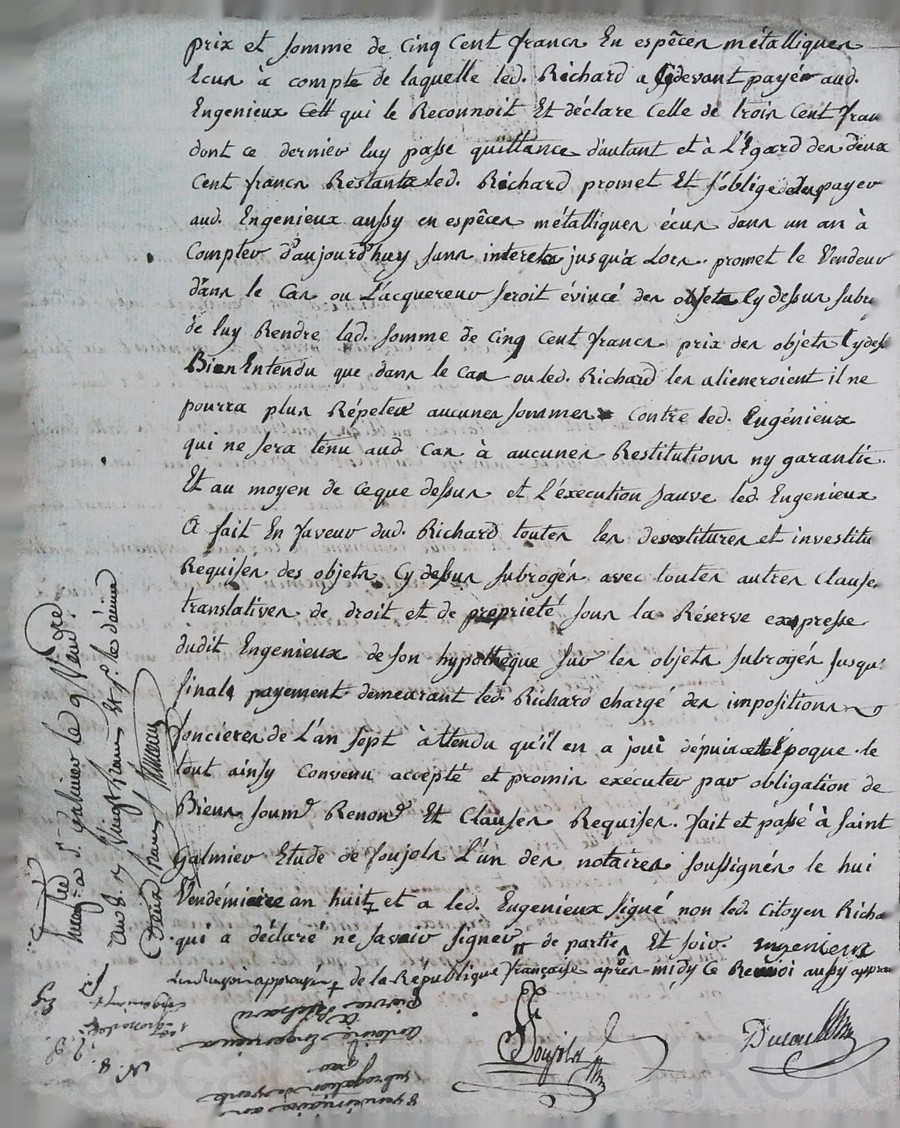 prix et somme de Cinq Cent francs En espêces métalliques
Ecus à compte de laquelle led. Richard a Cydevant payé aud.
Engenieux qui le Reconnoit Et déclare Celle de trois Cent fran
dont ce dernier luy passe quittance d'autant et à L'Egard des deux
Cent francs Restants led. Richard promet Et s'oblige de les payer
aud. Engenieux aussy en espêces métalliques écus dans un an à
Compter d'aujourd'huy sans interets jusqu'à Lors. promet le Vendeur
dans le Cas ou L'acquereur seroit évincé des objets Cy dessus subro
de luy Rendre lad. somme de Cinq Cent francs prix des objets Cydess
Bien Entendu que dans le Cas ou led. Richard les alieneroient il ne
pourra plus Répeter aucunes sommes contre led. Engénieux
qui ne sera tenu aud Cas à aucunes Restitutions ny garantie.
Et au moyen de ceque dessus et L'éxecution sauve led. Engenieux
a fait En faveur dud. Richard toutes les devestitures et investitu
Requises des objets Cy dessus subrogés avec toutes autres Clauses
translatives de droit et de propriété sous la Réserve expresse
dudit Engenieux de son hypothêque sur les objets subrogés jusqu'
finale payement demeurant led. Richard chargé des impositions
foncieres de L'an sept attendu qu'il en a joui dépuis cette Epoque. le
tout ainsy Convenu accepté et promis exécuter par obligation de
Biens soumd Renond Et Clauses Requises. fait et passé à Saint
Galmier Etude de Soujols L'un des notaires soussignés le huit
Vendémiaire an huit et a led. Engenieux signé non led. Citoyen Richa
qui a déclaré ne savoir signer de partie Et soir. ingenieux
de la République française après-midy Ce Renvoi aussy approu
Soujols
Enregistré à St. Galmier le 9 Vend.re
an 8.
8 vendemiaire an
subrogation de vente
par
Antoine Engenieux
à
Pierre Richard
N. 8